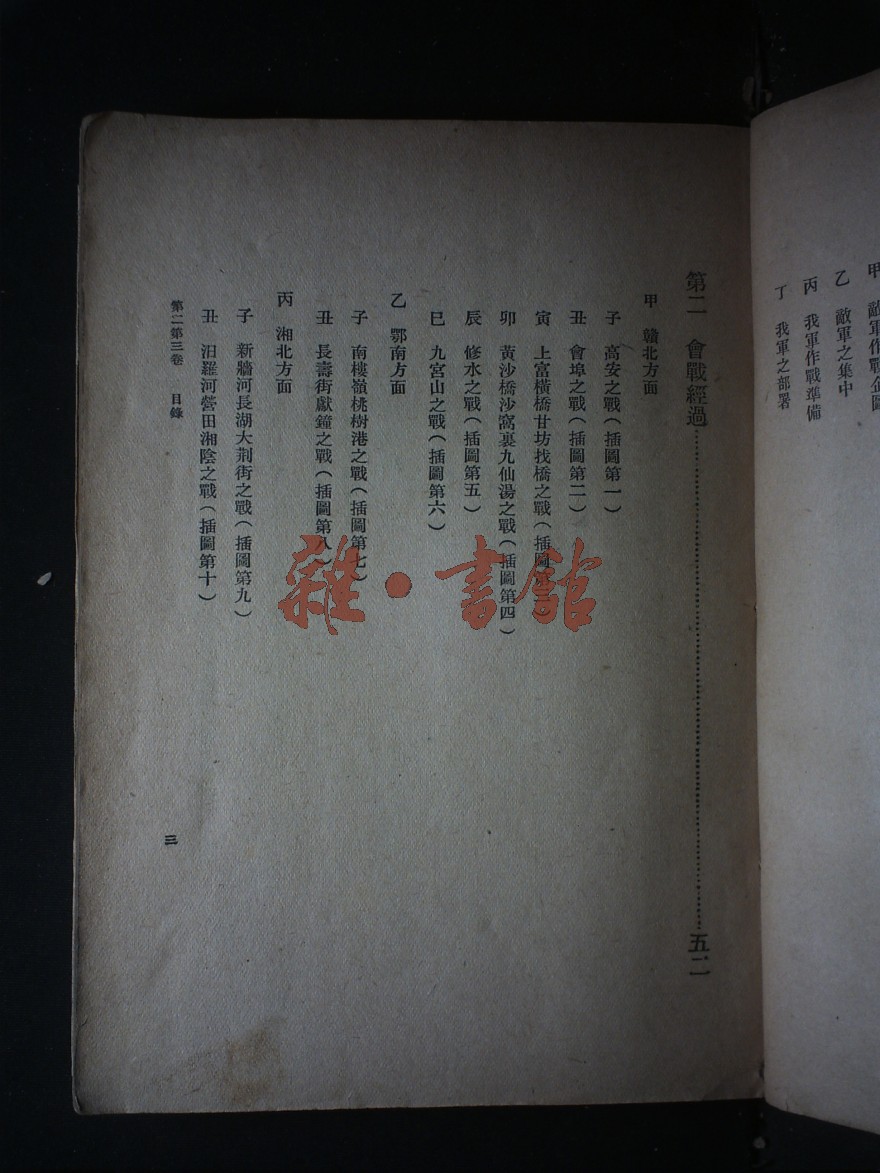 乙　敵軍之集中
丙　我軍作戰準備
丁　我軍之部署
第二　會戰經過……五二
甲　贛北方面
子　高安之戰（插圖第一）
丑　會埠之戰（插圖第二）
寅　上富橫橋甘坊找橋之戰（插圖第三）
卯　黃沙橋沙窩裏九仙湯之戰（插圖第四）
辰　修水之戰（插圖第五）
巳　九宮山之戰（插圖第六）
乙　鄂南方面
子　南樓嶺桃樹港之戰（插圖第七）
丑　長壽街獻鐘之戰（插圖第八）
丙　湘北方面
子　新牆河長湖大荆街之戰（插圖第九）
丑　汨羅河營田湘陰之戰（插圖第十）
第二第三卷　目錄
三
雜·書館